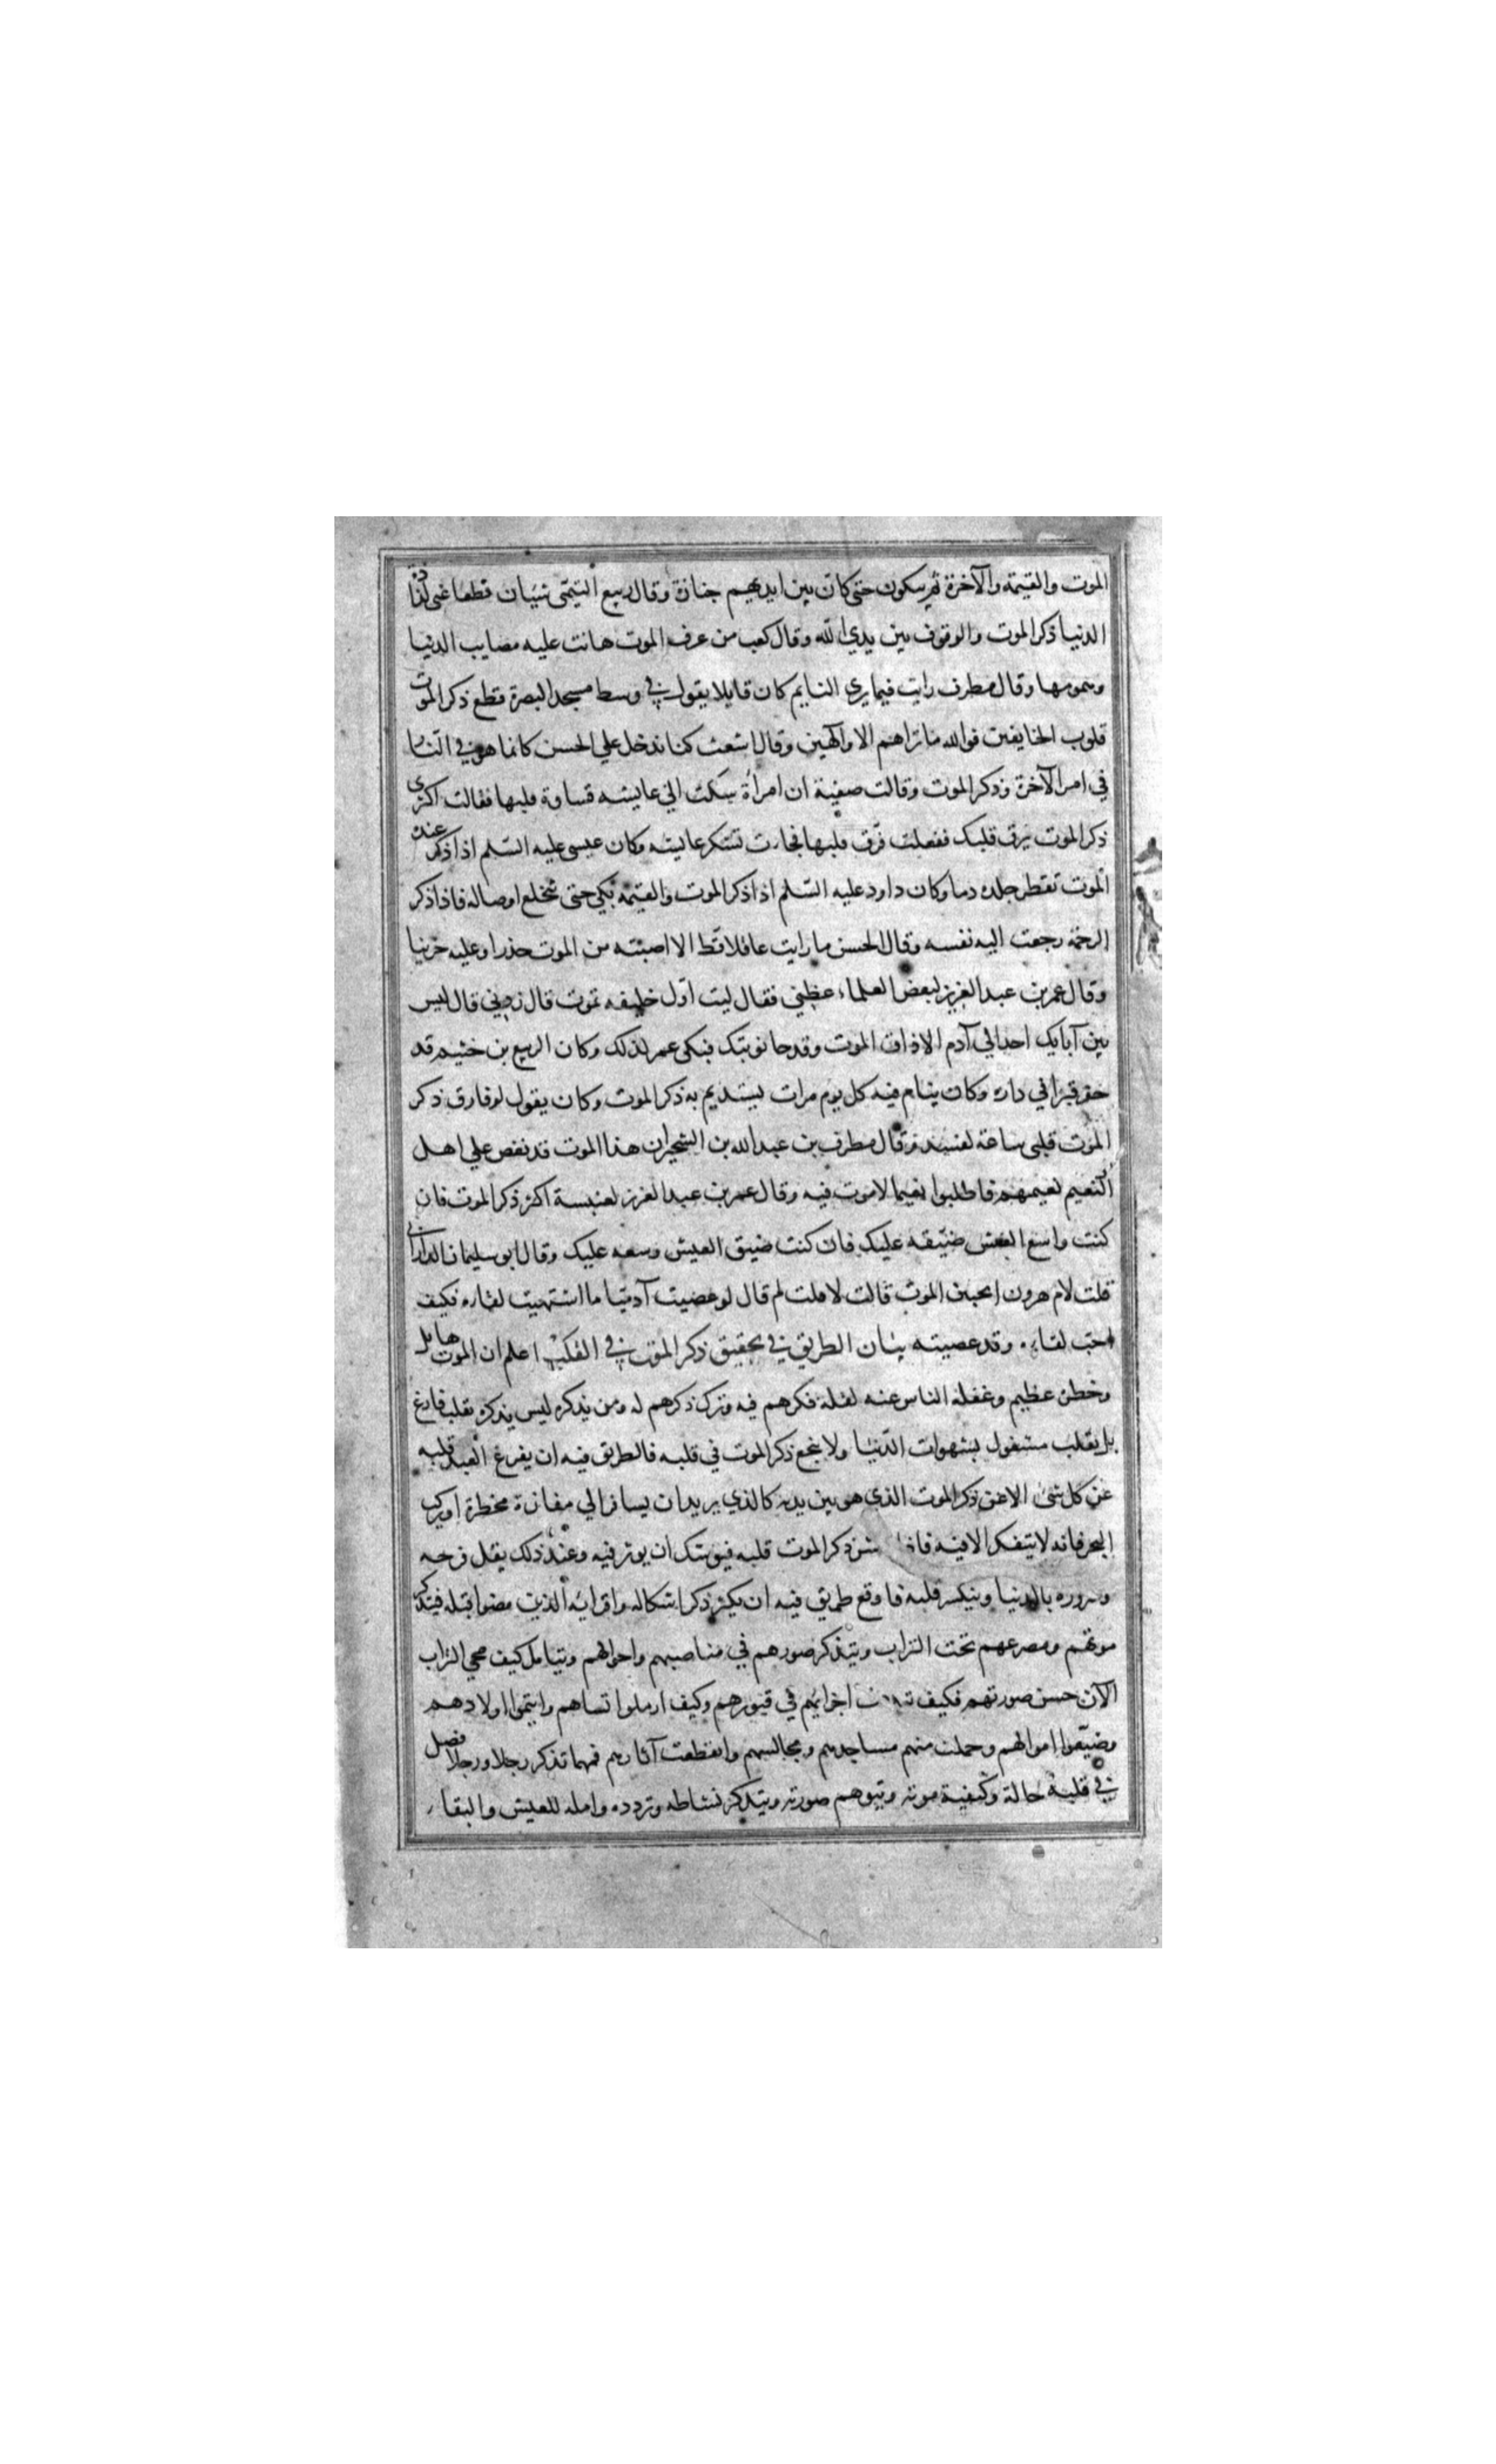 الموت والقيمة والآخرة ثم يبكون حتى كان بين ايديهم جنازة وقال ربيع التيمى شيئان قطعا عنى لذاذة
الدنيا ذكر الموت والوقوف بين يدي الله وقال كعب من عرف الموت هانت عليه مصايب الدنيا
وهمومها وقال مطرف رايت فيما يرى النايم كان قايلا يقول في وسط مسجد البصرة قطع ذكر الموت
قلوب الخايفين فوالله ما تراهم الا والهين وقال اشعث كنا ندخل علي الحسن كانما هو في النار
في امر الآخرة وذكر الموت وقالت صفية ان امرأة شكت الي عايشه قساوة قلبها فقالت اكثرى
ذكر الموت يرق قلبك ففعلت فرق قلبها فجارت تشكر عايشه وكان عيسى عليه السلم اذا ذكر عنده
الموت تقطر جلده دما وكان داود عليه السلم اذا ذكر الموت والقيمه بكي حتى تنخلع اوصاله فاذا ذكر
الرحمة رجعت اليه نفسه وقال الحسن ما رايت عاقلا قط الا اصبته من الموت حذرا وعليه حزينا
وقال عمر بن عبد العزيز لبعض العلماء عظني فقال ليت اول خليفه تموت قال زدني قال ليس
بين آبايك احد الي آدم الا ذاق الموت وقد جا نوبتك فبكى عمر لذلك وكان الربيع بن خثيم قد
حفر قبرا في داره وكان ينام فيه كل يوم مرات يستديم به ذكر الموت وكان يقول لو فارق ذكر
الموت قلبي ساعة لفسد وقال مطرف بن عبد الله بن الشخير ان هذا الموت قد نغص علي اهل
النعيم نعيمهم فاطلبوا نعيما لا موت فيه وقال عمر بن عبد العزيز لعنبسة اكثر ذكر الموت فان
كنت واسع العيش ضيقه عليك فان كنت ضيق العيش وسعه عليك وقال ابو سليمان الداراني
قلت لام هرون اتحبين الموت قالت لا قلت لم قال لو عصيت آدميا ما اشتهيت لقاره فكيف
احب لقاءه وقد عصيته بيان الطريق في تحقيق ذكر الموت في القلب اعلم ان الموت هايل
وخطره عظيم وغفلة الناس عنه لقلة فكرهم فيه وترك ذكرهم له ومن يذكره ليس يذكره بقلب فارغ
بل بقلب مشغول بشهوات الدنيا ولا ينجع ذكر الموت في قلبه فالطريق فيه ان يفرغ العبد قلبه
عن كل شئ الا عن ذكر الموت الذي هو بين يديه كالذي يريد ان يسافر الي مفازة مخطرة او يركب
البحر فانه لا يتفكر الا فيه فاذا ذكر الموت قلبه فيوشك ان يوثر فيه وعند ذلك يقل فرحه
وسروره بالدنيا وينكسر قلبه فاوقع طريق فيه ان يكثر ذكر اشكاله واقرانه الذين مضوا قبله فيتذكر
موتهم ومصرعهم تحت التراب ويتذكر صورهم في مناصبهم واحوالهم ويتامل كيف محي التراب
الآن حسن صورتهم فكيف اجزايهم في قبورهم وكيف ارملوا نساهم وايتموا اولادهم
وضيعوا اموالهم وحملت منهم مساجدهم ومجالسهم وانقطعت آثارهم فمهما تذكر رجلا ورجلا فصل
في قلبه حالة وكيفية موته وتيوهم صورته ويتذكر نشاطه وتردده وامله للعيش والبقاء